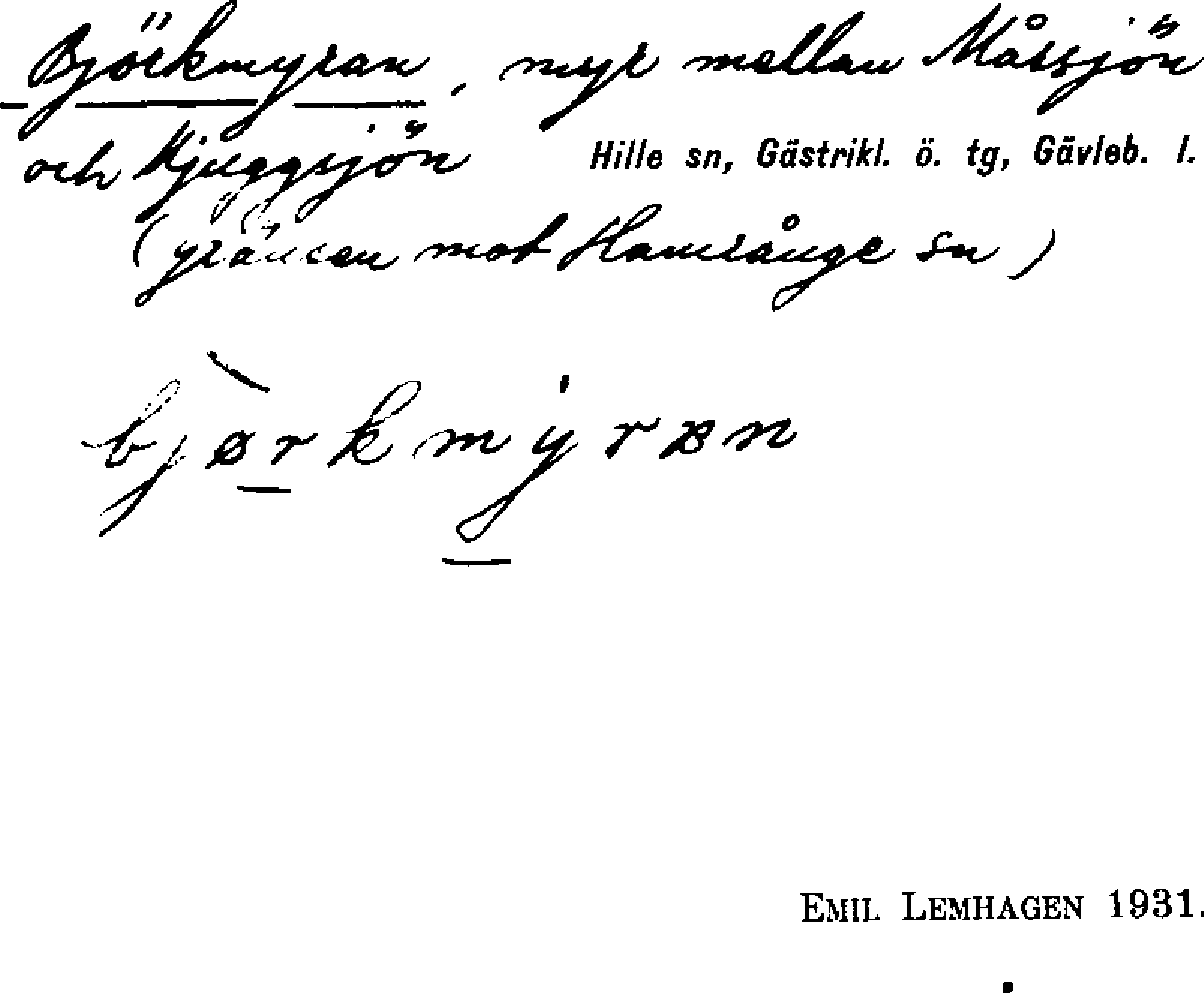 Björkmyran, myr mellan Mårsjön
och Kjuggsjön Hille sn, Gästrikl. ö. tg, Gävleb. l.
(gränsen mot Hamrånge sn)
bjørkmyran
EMIL LEMHAGEN 1931.